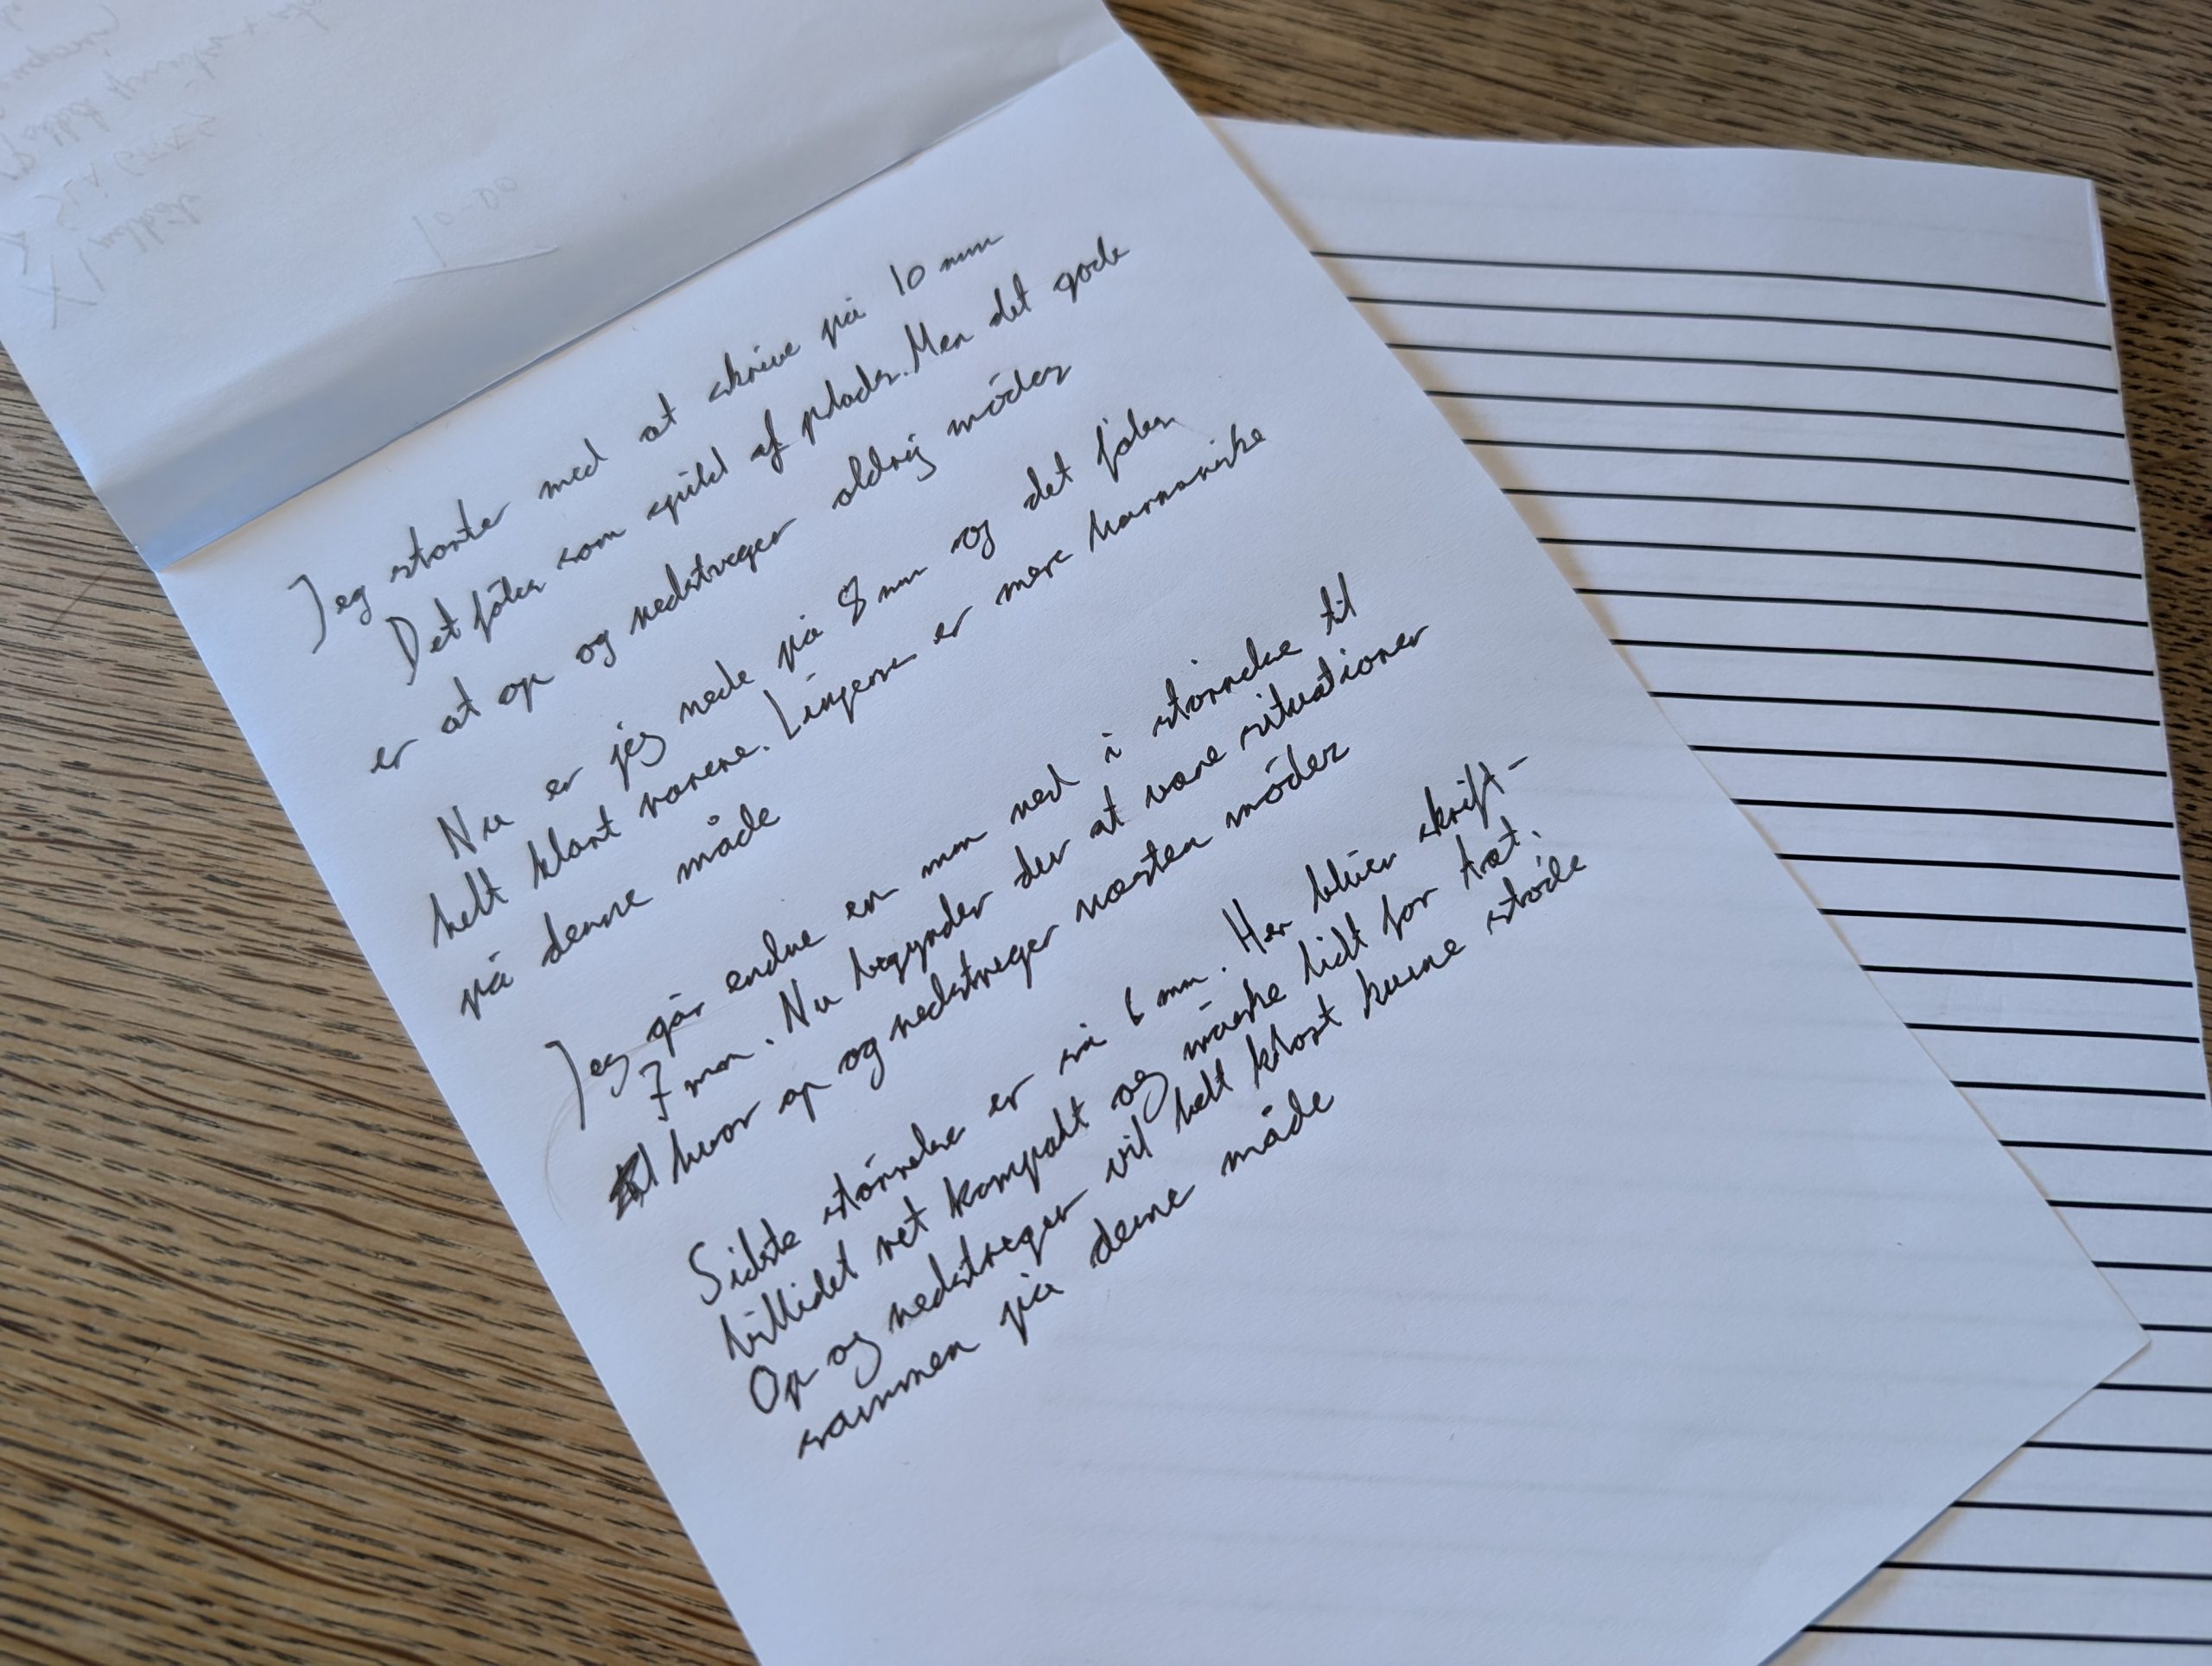 10-00
Jeg starter med at skrive på 10 mm
Det føles som spild af plads. Men det gode
er at op og nedstreger aldrig mødes
Nu er jeg nede på 8 mm og det føles
helt klart rarere. Linjerne er mere harmoniske
på denne måde
Jeg går endnu en mm ned i størrelse til
7 mm. Nu begynder der at være situationer
hvor op og nedstreger næsten mødes
Sidste størrelse er så 6 mm. Her bliver skrift-
billidet ret kompakt og måske lidt for tæt.
Op og nedstreger vil helt klart kunne støde
sammen på denne måde